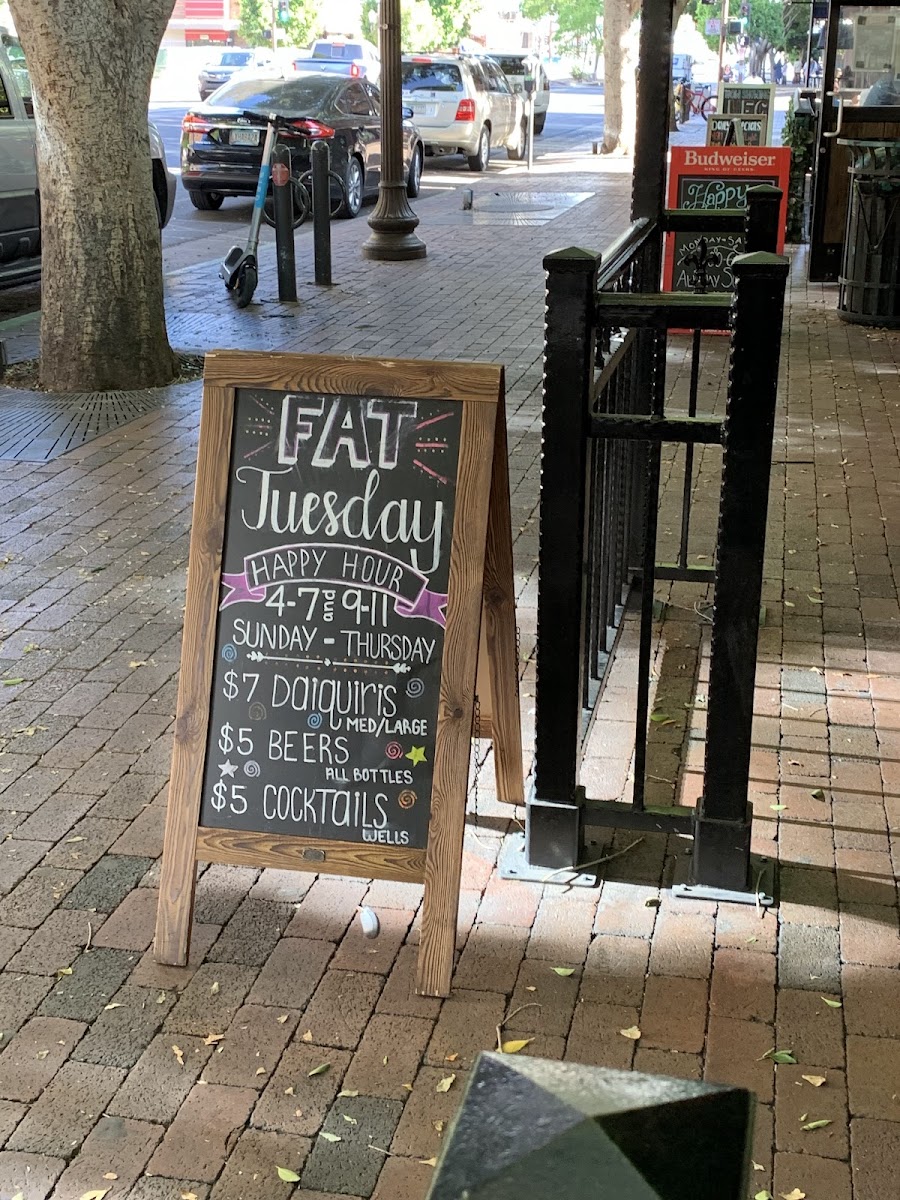 FAT
Tuesday
HAPPY HOUR
4-7 and 9-11
SUNDAY - THURSDAY
$7 DAIQUIRIS
MED/LARGE
$5 BEERS
ALL BOTTLES
$5 COCKTAILS
WELLS
Budweiser
KING OF BEERS
Happy
MONDAY-SA
UFC